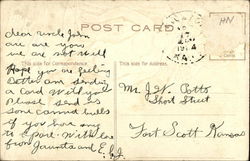 POST CARD
HN
dear uncle John
how are you
we are not well
Hope you are feeling
better am sending
a card with you
please send us
some cannas bulbs
if you have some
to spare. With love
from Juanita and E.G.J.
This side for Correspondence.
This side for Address.
1914
KA
Mr. J. W. Otto
Short Street
Fort Scott Kansas